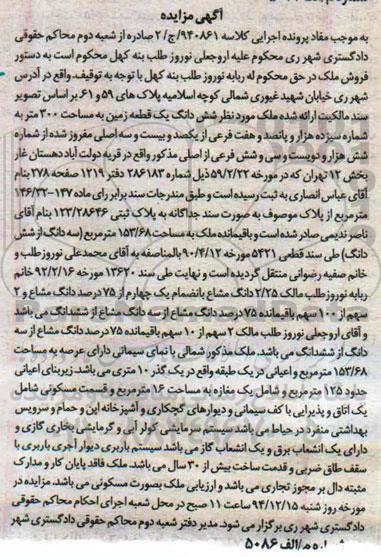 آگهی مزایده
به موجب مفاد پرونده اجرایی کلاسه ۹۴۰۸۶۱/ج/۲ صادره از شعبه دوم محاکم حقوقی
دادگستری شهر ری محکوم علیه اروجعلی نوروز طلب بنه کهل محکوم است به دستور
فروش ملک در حق محکوم له ربابه نوروز طلب بنه کهل با توجه به توقیف. واقع در آدرس
شهر ری خیابان شهید غیوری شمالی کوچه اسلامیه پلاک های ۵۹ و ۶۱ بر اساس تصویر
سند مالکیت ارائه شده ملک مورد نظر شش دانگ یک قطعه زمین به مساحت ۳۰۰ متر به
شماره سیزده هزار و پانصد و هفت فرعی از یکصد و بیست و سه اصلی مفروز شده از شماره
شش هزار و دویست و سی و شش فرعی از اصلی مذکور واقع در قریه دولت آباد دهستان غار
بخش ۱۲ تهران که در مورخه ۵۹/۲/۲۲ ذیل شماره ۲۸۶۱۸۳ دفتر ۱۲۱۹ صفحه ۲۷۸ بنام
آقای عباس انصاری به ثبت رسیده است و طبق مندرجات سند برابر رای ماده ۱۴۷-۱۴۶/۳۲
مترمربع از پلاک موصوف به صورت سند جداگانه به پلاک ثبتی ۱۲۳/۲۸۶۴۶ بنام آقای
ناصر ندیمی صادر شده است و باقیمانده ملک به مساحت ۱۵۳/۶۸ مترمربع (سه دانگ از شش
دانگ) طی سند قطعی ۵۴۲۱ مورخه ۹۰/۴/۱۲ بالمناصفه به آقای محمدعلی نوروز طلب و
خانم صفیه رضوانی منتقل گردیده است و نهایت طی سند ۱۳۶۲۰ مورخه ۹۲/۲/۱۶ خانم
ربابه نوروز طلب مالک ۲/۲۵ دانگ مشاع بانضمام یک چهارم از ۷۵ درصد دانگ مشاع و ۲
سهم از ۱۰۰ سهم باقیمانده ۷۵ درصد دانگ مشاع از سه دانگ مشاع از ششدانگ می باشد
و آقای اروجعلی نوروز طلب مالک ۲ سهم از ۱۰ سهم باقیمانده ۷۵ درصد دانگ مشاع از سه
دانگ از ششدانگ می باشد. ملک مذکور شمالی با نمای سیمانی دارای عرصه به مساحت
۱۵۳/۶۸ مترمربع و اعیانی در یک طبقه واقع در یک گذر ۱۰ متری می باشد. زیربنای اعیانی
حدود ۱۲۵ مترمربع و شامل یک مغازه به مساحت ۱۶ مترمربع و قسمت مسکونی شامل
یک اتاق و پذیرایی با کف سیمانی و دیوارهای گچکاری و آشپزخانه اپن و حمام و سرویس
بهداشتی منفرد در حیاط می باشد سیستم سرمایشی کولر آبی و گرمایشی بخاری گازی و
دارای یک انشعاب برق و یک انشعاب گاز می باشد سیستم باربری دیوار آجری باربری با
سقف طاق ضربی و قدمت ساخت بیش از ۳۰ سال می باشد. ملک فاقد پایان کار و مدارک
مثبته دال بر مجوز تجاری می باشد و ارزیابی ملک بصورت مسکونی می باشد. مزایده در
مورخه روز شنبه ۹۴/۱۲/۱۵ ساعت ۱۱ صبح در محل شعبه اجرای احکام محاکم حقوقی
دادگستری شهر ری برگزار می شود. مدیر دفتر شعبه دوم محاکم حقوقی دادگستری شهر
م/الف ۵۰۸۶